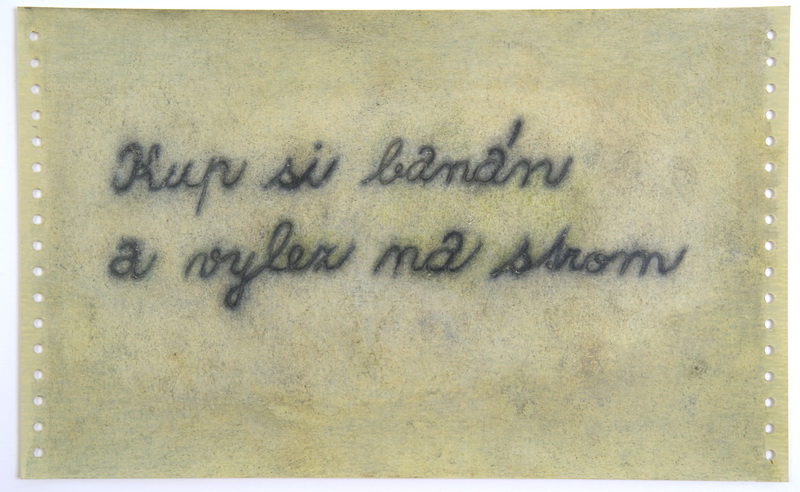 Kup si banán
a vylez na strom